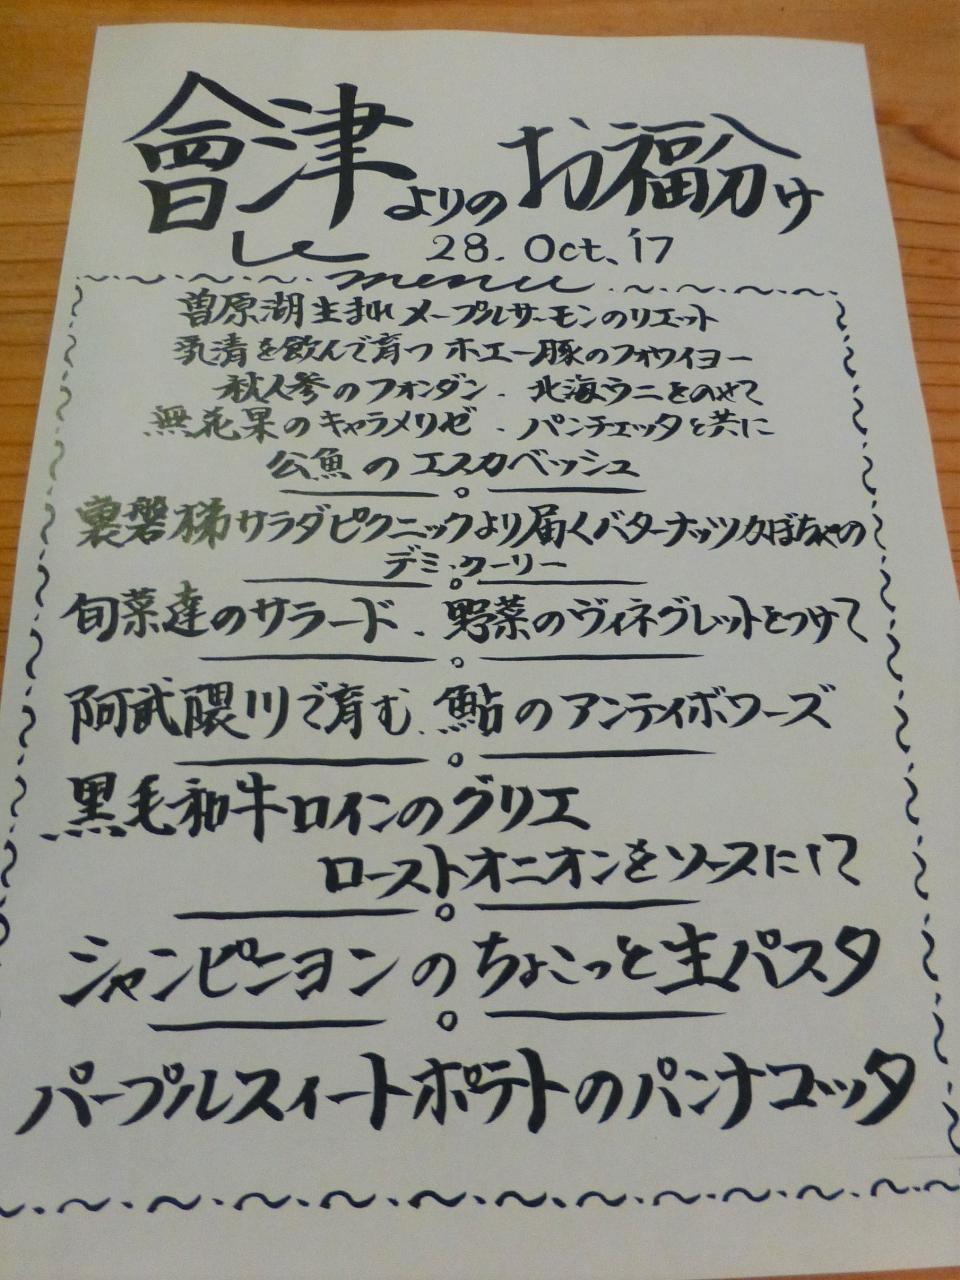 會津よりのお福分け
Le 28. Oct, '17
menu
曽原湖生まれメープルサーモンのリエット
乳清を飲んで育つホエー豚のフォワイヨー
秋人参のフォンダン . 北海ウニをのせて
無花果のキャラメリゼ . パンチェッタと共に
公魚のエスカベッシュ
裏磐梯サラダピクニックより届くバターナッツかぼちゃの
デミ・クーリー
旬菜達のサラード . 野菜のヴィネグレットをつけて
阿武隈川で育む、鮎のアンティボワーズ
黒毛和牛ロインのグリエ
ローストオニオンをソースにして
シャンピニヨンのちょこっと生パスタ
パープルスィートポテトのパンナコッタ